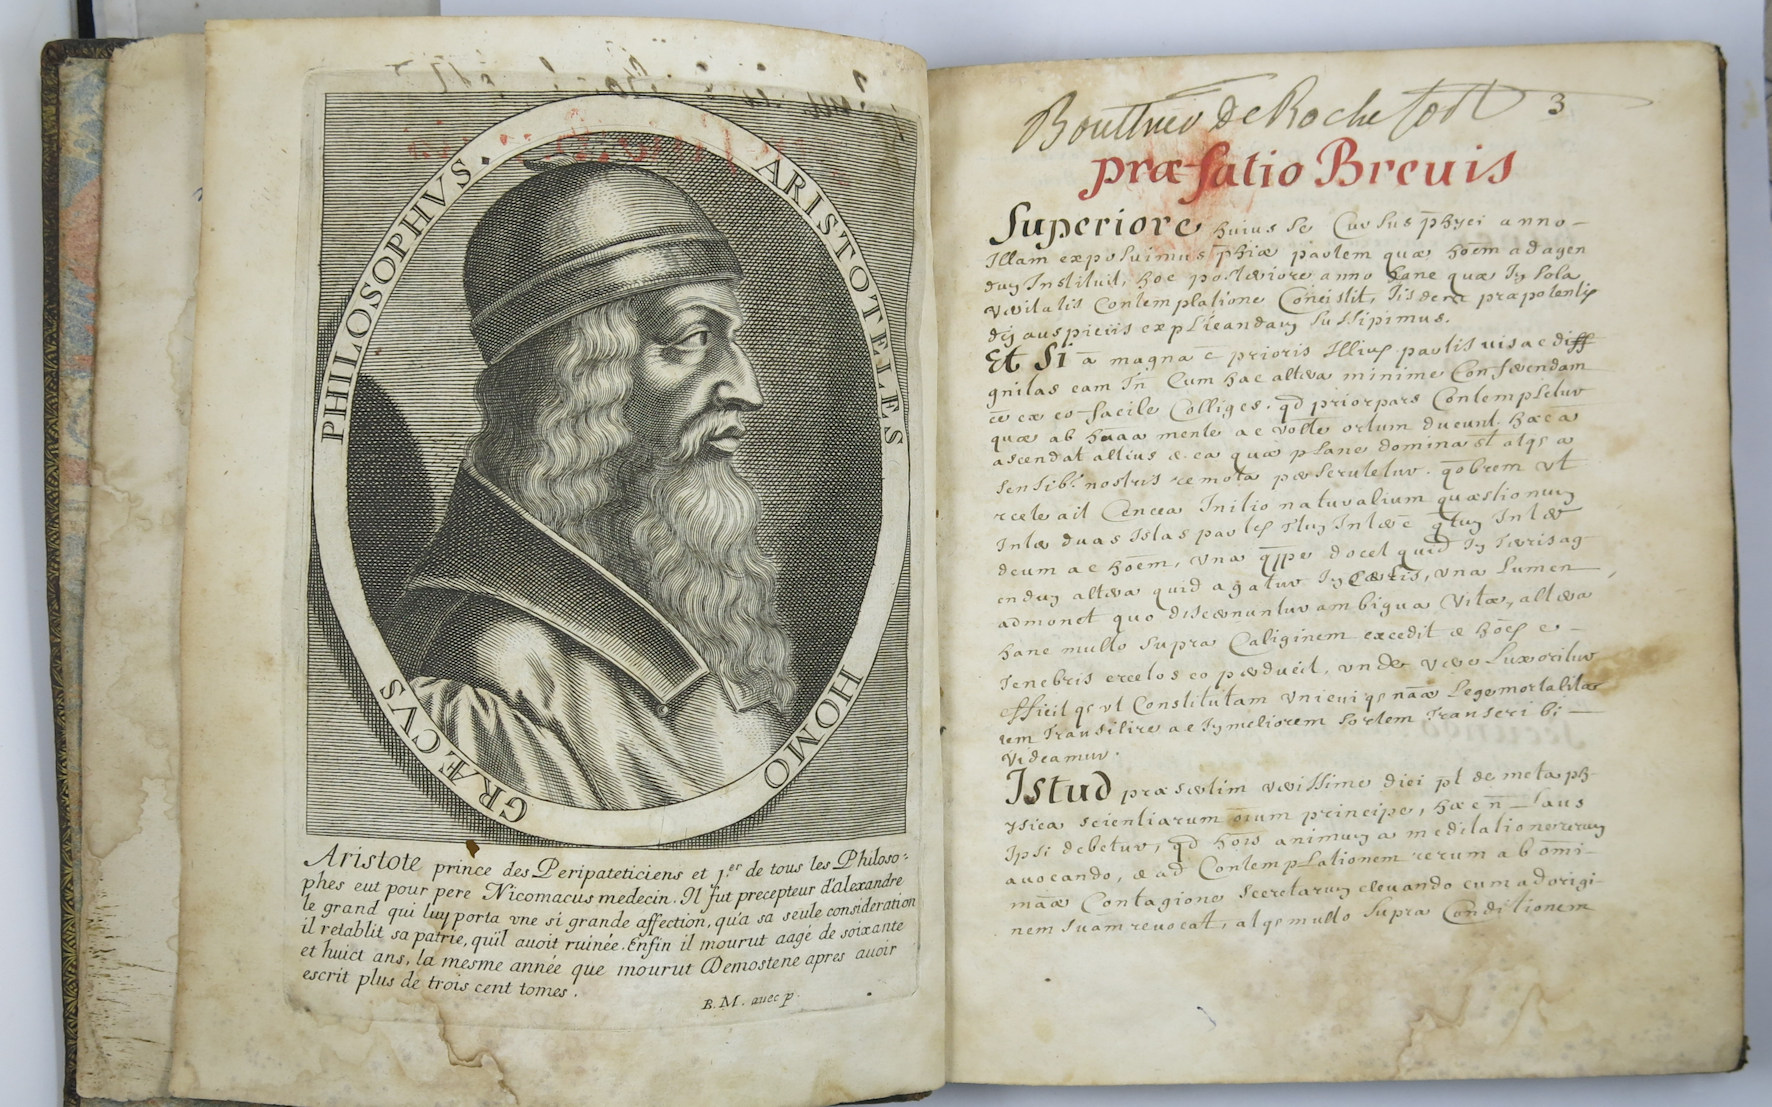 ARISTOTELES HOMO GRÆCVS PHILOSOPHVS.
Aristote prince des Peripateticiens et 1.er de tous les Philoso:
phes eut pour pere Nicomacus medecin. Il fut precepteur d'alexandre
le grand qui luy porta vne si grande affection, qu'a sa seule consideration
il retablit sa patrie, qu'il auoit ruinée. Enfin il mourut aagé de soixante
et huict ans, la mesme année que mourut Demostene apres auoir
escrit plus de trois cent tomes.
B. M. auec p.
de Rochefort 3
præfatio Breuis
Superiore huius Cursus phyci anno
Illam exposuimus phiæ partem quæ hoēm ad agen
dum Instituit, hoc posteriore anno hanc quæ In sola
veritatis Contemplatione præpotentis
dei auspiciis explicandam suscipimus.
Et Si a magna ē prioris Illius partis vis ac diff
gnitas eam Cum hac altera minime Conferendam
eo facile Colliges. qd prior pars Contempletur
quæ ab mente ac ortum ducunt. hæc a
ascendat altius & ea quæ plane atqs a
Sensib. nostris remota perscrutetur. qobrem vt
recte ait Initio naturalium quæstionum
Inter duas Istas partes Inter ē qtum Inter
deum ac hoēm, vna qppe docet quid In terris ag
endum altera quid agatur In Cælis, vna Lumen
admouet quo discernuntur ambigua Vitæ, altera
hanc multo supra Caliginem excedit & e
Tenebris eo perducit, vnde vero Lux oritur
efficitqs vt Constitutam vnicuiqs Lege mortalita
tem Transilire ac In meliorem sortem Transcribi
Videamur.
Istud præsertim verissime dici pt de metaph
ysica scientiarum oium principe, hæc Laus
Ipsi debetur, qd hois animum a meditatione rerum
auocando, & ad Contemplationem rerum ab omi
Contagione secretarum eleuando eum ad origi
nem suam reuocat, atqs multo supra Conditionem